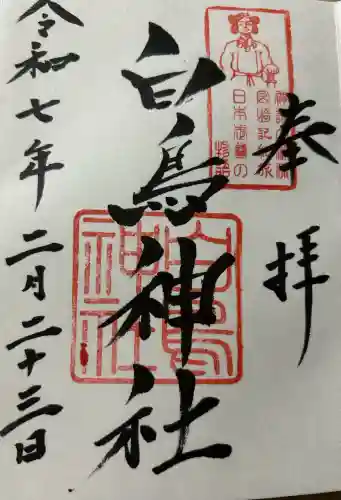 奉拝
日本武尊の
物語
白鳥神社
白鳥
神社
令和七年二月二十三日